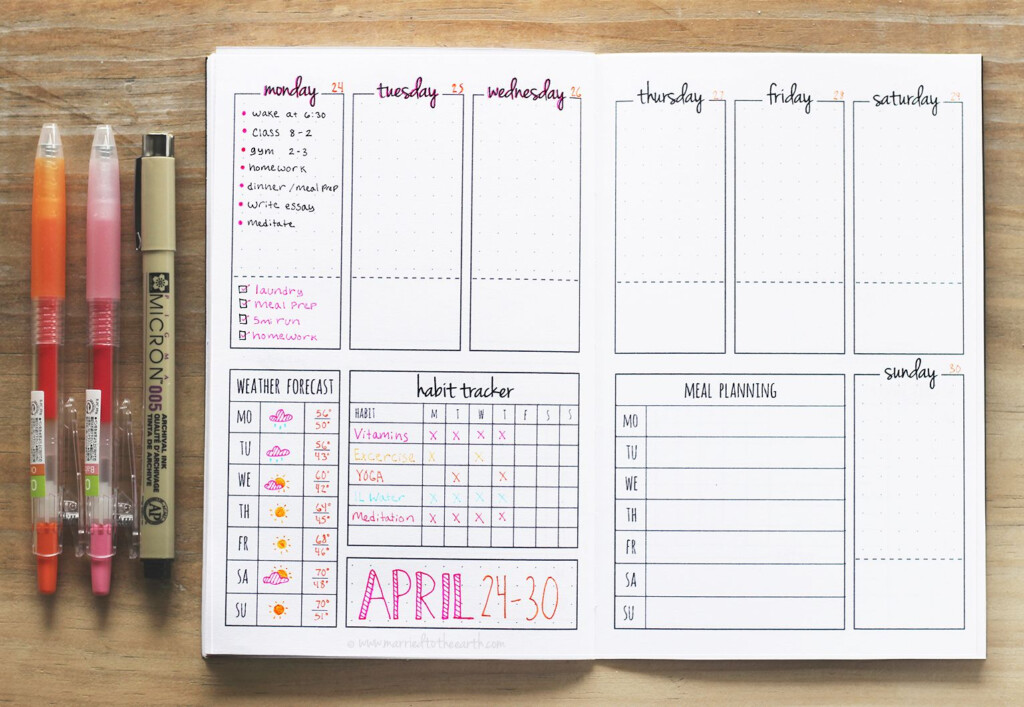 monday 24
• wake at 6:30
• class 8-2
• gym 2-3
• homework
• dinner/meal prep
• write essay
• meditate
laundry
meal prep
5mi run
homework
tuesday 25
wednesday 26
thursday 27
friday 28
saturday 29
sunday 30
WEATHER FORECAST
MO 56° 50°
TU 56° 43°
WE 60° 42°
TH 64° 45°
FR 68° 46°
SA 70° 48°
SU 70° 51°
habit tracker
HABIT M T W T F S S
Vitamins X X X X
Excercise X X
YOGA X X
1L Water X X X X
Meditation X X X X
APRIL 24-30
© www.marriedtotheearth.com
MEAL PLANNING
MO
TU
WE
TH
FR
SA
SU
PIGMA
MICRON 005
ARCHIVAL INK
QUALITÉ D'ARCHIVAGE
TINTA DE ARCHIVE
AP